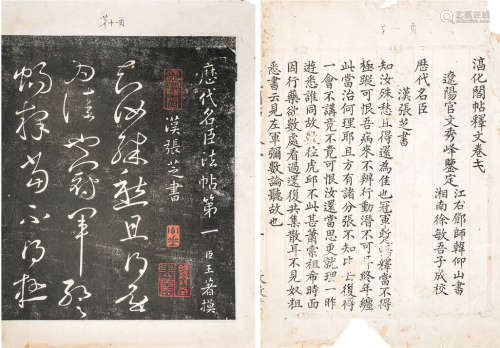 歷代名臣法帖第一 臣王著模
漢張芝書
知汝殊愁且得還
為佳也冠軍暫
暢釋當不得極
化閣帖釋文卷
遼陽官文秀峰鑒定
江右鄧師韓仰山書
湘南徐敏吾子成校
歷代名臣
漢張芝書
知汝殊愁且得還為佳也冠軍暫暢釋當不得
極蹤可恨吾病來不辦行動潛不可耳終年纏
此當治何理耶且方有諸分張不知比去復得
一會不講竟不竟可恨汝還當思更就理一昨
遊悉誰同故數往虎邱不此甚蕭索祖希時面
因行藥欲數處看過還復共集散耳不見奴粗
悉書云見左軍彌數論聽故也